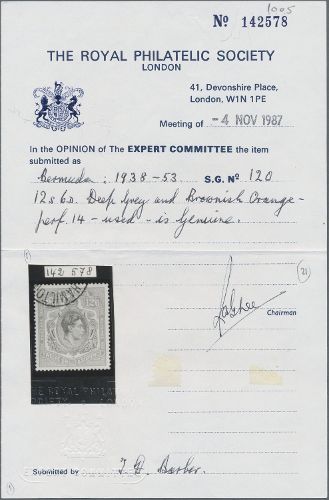 1005
Nº 142578
THE ROYAL PHILATELIC SOCIETY
LONDON
41, Devonshire Place,
London, W1N 1PE
Meeting of -4 NOV 1987
In the OPINION of The EXPERT COMMITTEE the item
submitted as
Bermuda: 1938-53 S.G. Nº 120
12s6d. Deep Grey and Brownish Orange-
perf. 14 - used - is Genuine.
142 578
21
HAMILTO
Chairman
THE ROYAL PHILAT
Submitted by